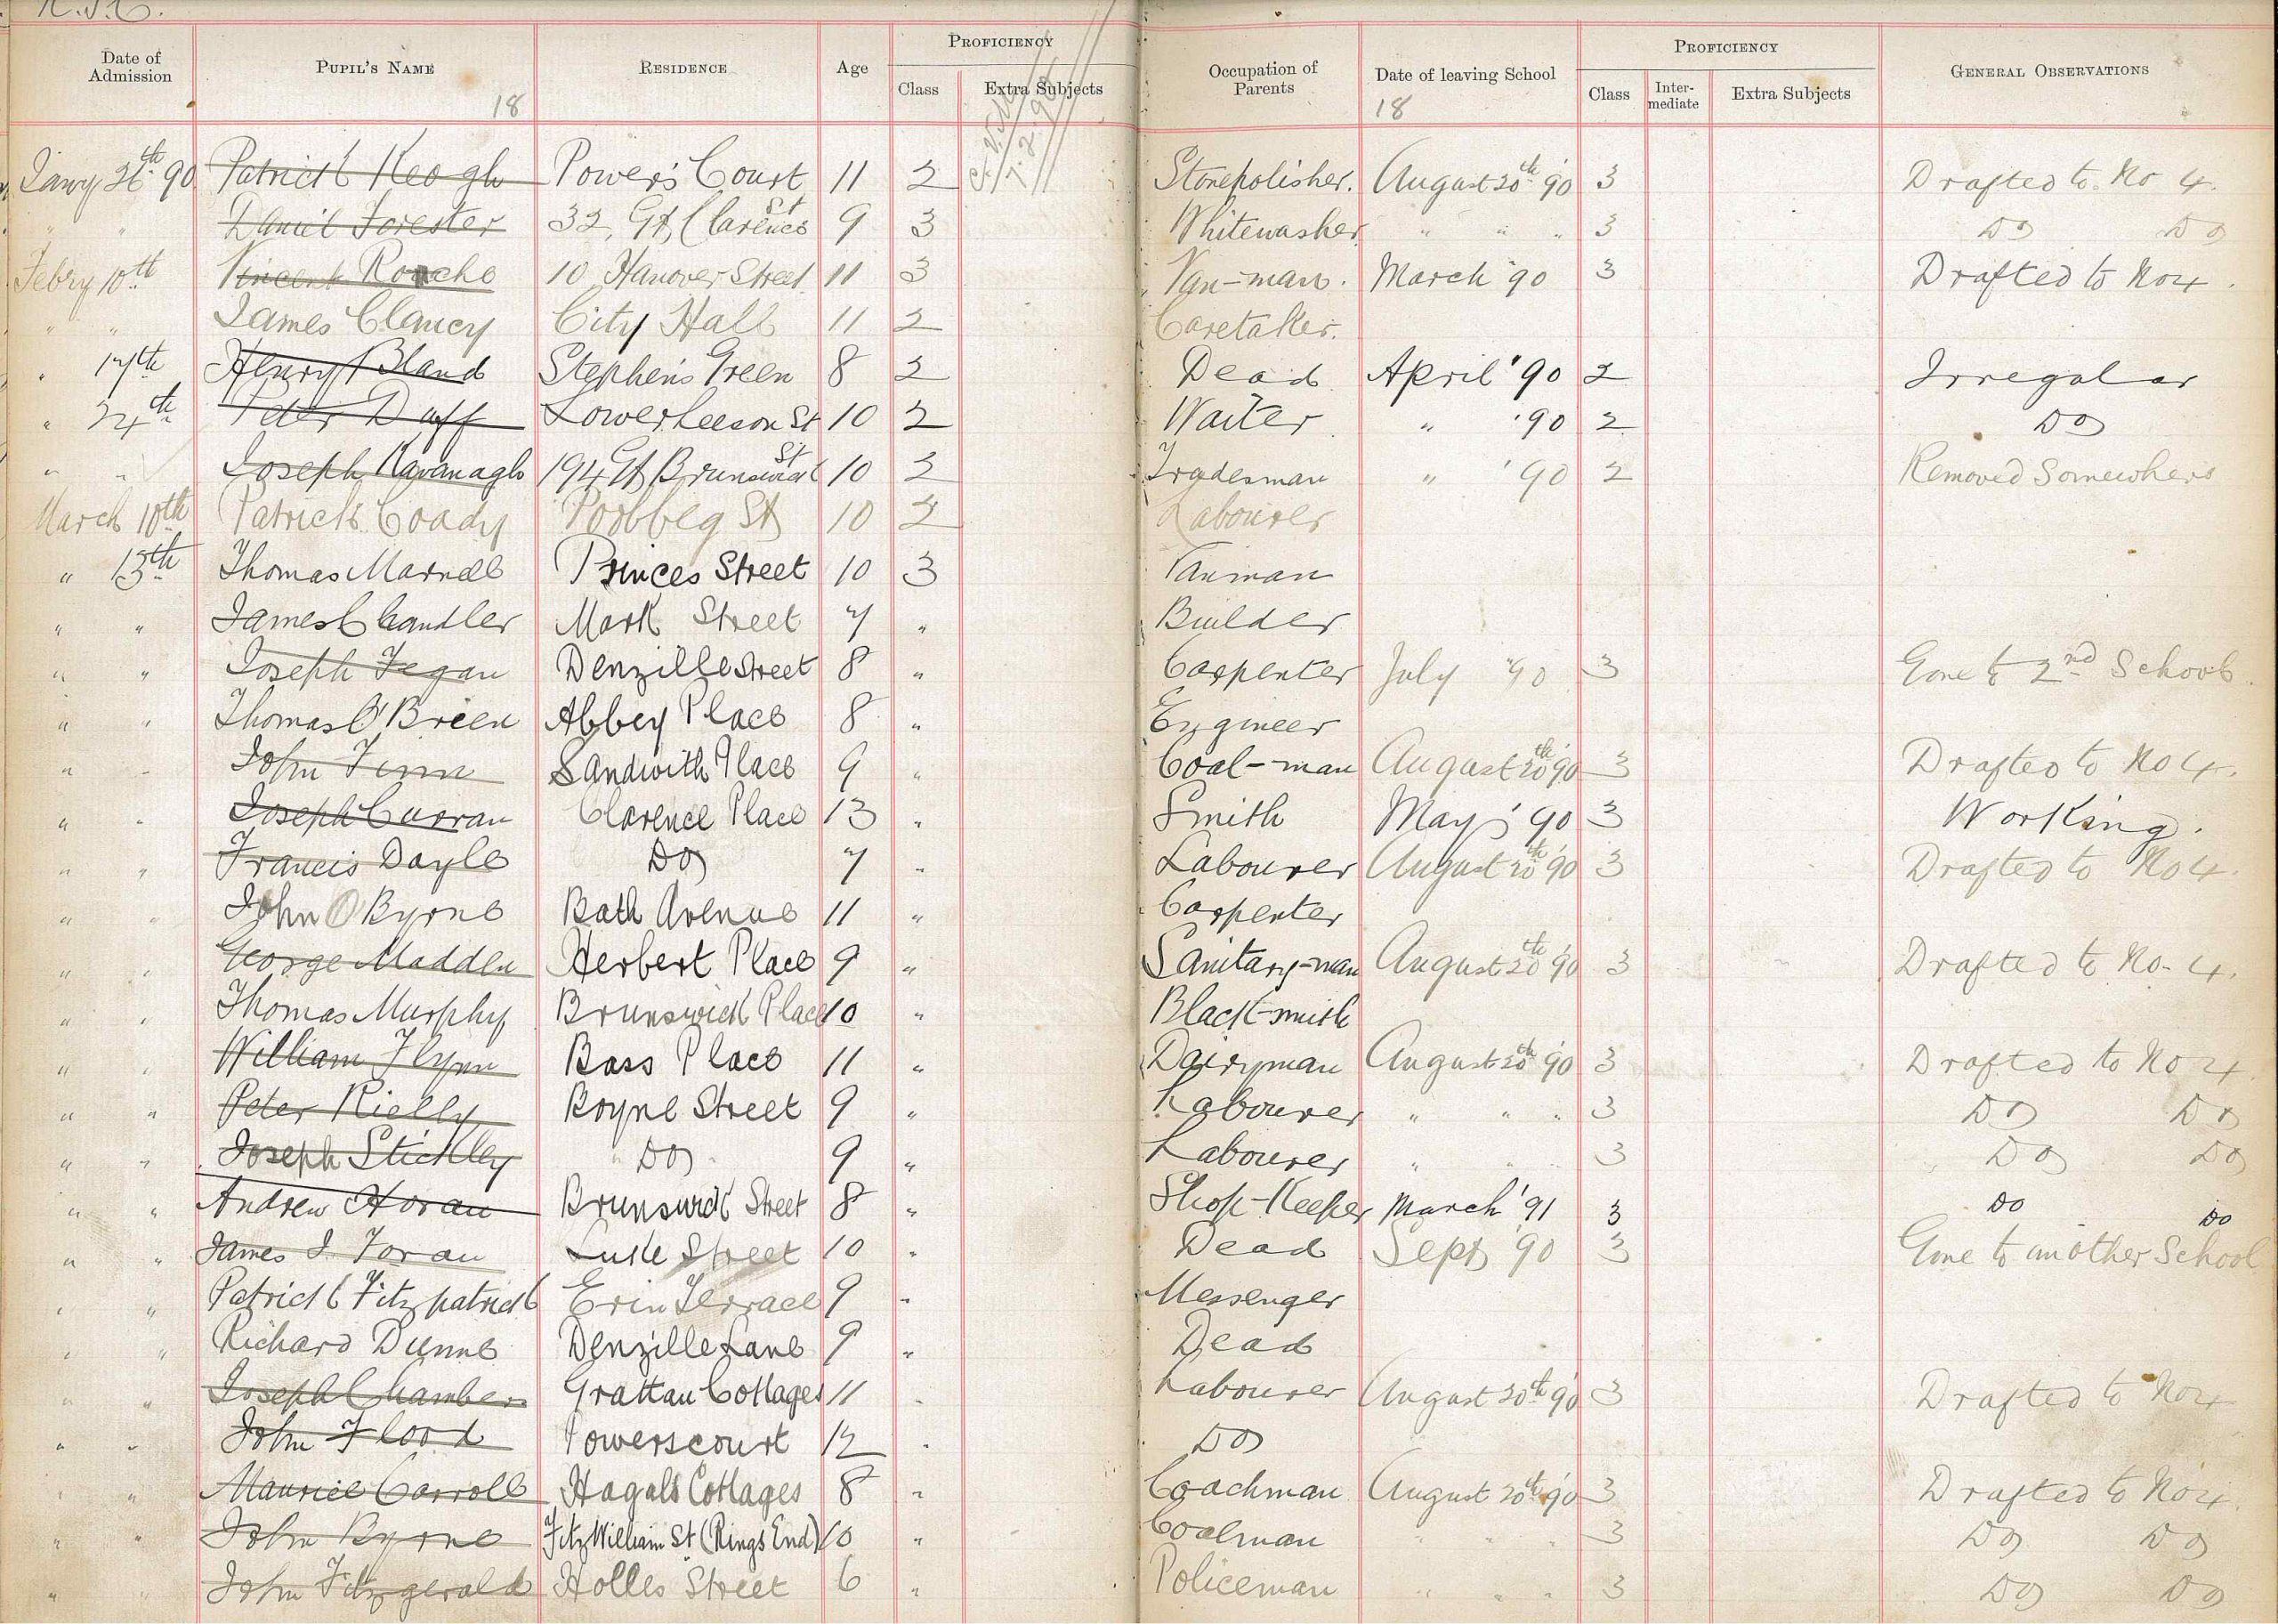 Date of Admission PUPIL'S NAME RESIDENCE Age PROFICIENCY Class Extra Subjects Occupation of Parents Date of leaving School PROFICIENCY Class Inter-mediate Extra Subjects GENERAL OBSERVATIONS
18 18
Jany 26th 90 Patrick Keogh Power's Court 11 2 Stonepolisher. August 20th '90 3 Drafted to No 4.
" " Daniel Forester 32, Gt Clarence St 9 3 Whitewasher " " " 3 Do Do
Febry 10th Vincent Roache 10 Hanover Street 11 3 Van-man. March '90 3 Drafted to No 4.
" " James Clancy City Hall 11 2 Caretaker.
" 17th Henry Bland Stephen's Green 8 2 Dead April '90 2 Irregular
" 24th Peter Duff Lower Leeson St 10 2 Waiter " '90 2 Do
" " Joseph Kavanagh 194 Gt Brunswick St 10 2 Tradesman " '90 2 Removed Somewhere
March 10th Patrick Coady Poolbeg St 10 2 Labourer
" 13th Thomas Marnell Princes Street 10 3 Vanman
" " James Chandler Mark Street 7 " Builder
" " Joseph Fegan Denzille Street 8 " Carpenter July '90 3 Gone to 2nd School.
" " Thomas O'Brien Abbey Place 8 " Engineer
" " John Finn Sandwith Place 9 " Coal-man August 20th '90 3 Drafted to No 4.
" " Joseph Curran Clarence Place 13 " Smith May '90 3 Working.
" " Francis Doyle Do 7 " Labourer August 20th '90 3 Drafted to No 4.
" " John O Byrne Bath Avenue 11 " Carpenter
" " George Madden Herbert Place 9 " Sanitary-man August 20th '90 3 Drafted to No. 4.
" " Thomas Murphy Brunswick Place 10 " Black-smith
" " William Flynn Bass Place 11 " Dairyman August 20th '90 3 Drafted to No 4
" " Peter Rielly Boyne Street 9 " Labourer " " " 3 Do Do
" " Joseph Stickley Do 9 " Labourer " " " 3 Do Do
" " Andrew Horan Brunswick Street 8 " Shop-Keeper March '91 3 Do Do
" " James J. Foran Luke Street 10 " Dead Sept '90 3 Gone to another School
" " Patrick Fitzpatrick Erin Terrace 9 " Messenger
" " Richard Dunne Denzille Lane 9 " Dead
" " Joseph Chambers Grattan Cottages 11 " Labourer August 20th '90 3 Drafted to No 4
" " John Flood Powerscourt 12 " Do
" " Maurice Carroll Hagals Cottages 8 " Coachman August 20th '90 3 Drafted to No 4.
" " John Byrne Fitz William St (Rings End) 10 " Coalman " " " 3 Do Do
" " John Fitzgerald Holles Street 6 " Policeman " " " 3 Do Do